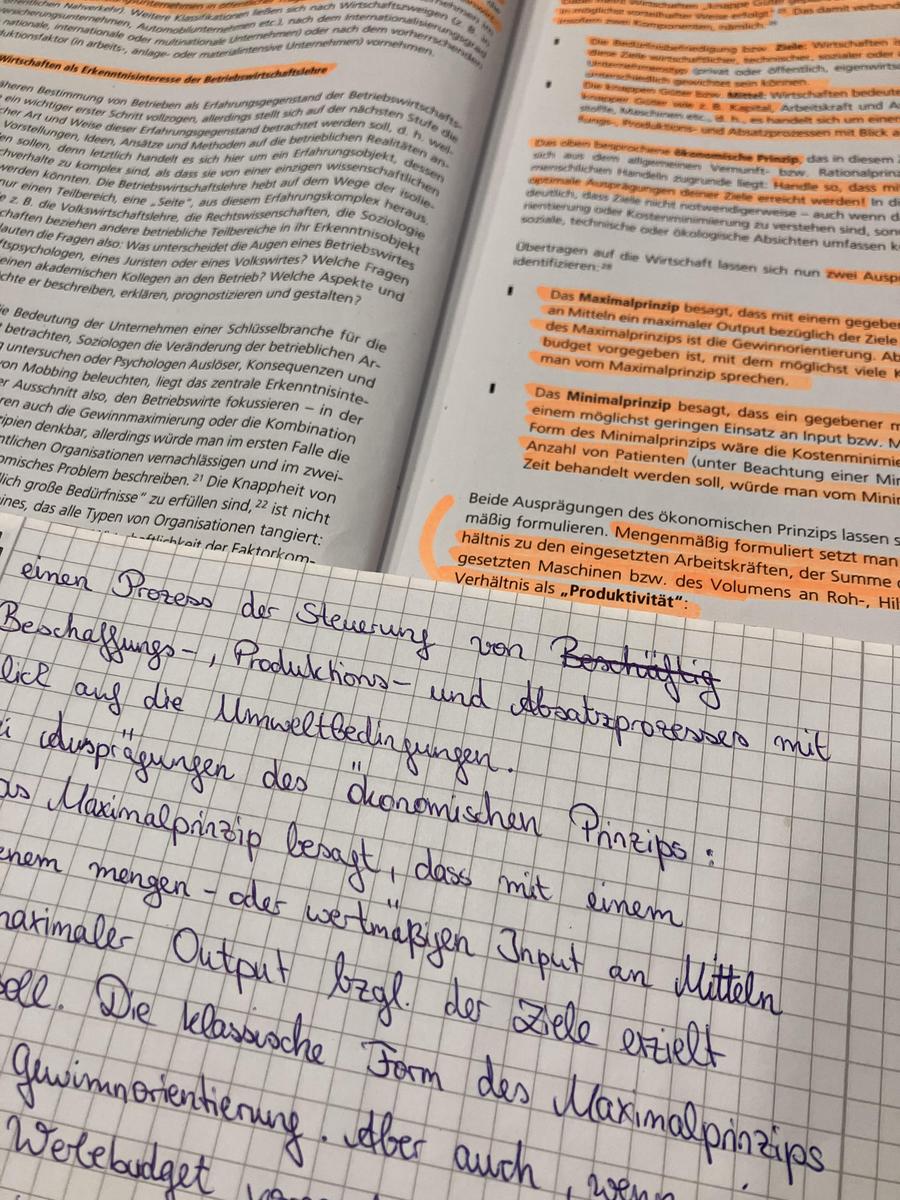 nationale, internationale oder multinationale Unternehmen) oder nach dem vorherrschenden
duktionsfaktor (in arbeits-, anlage- oder materialintensive Unternehmen) vornehmen.
Wirtschaften als Erkenntnisinteresse der Betriebswirtschaftslehre
äheren Bestimmung von Betrieben als Erfahrungsgegenstand der Betriebswirtschafts-
ein wichtiger erster Schritt vollzogen, allerdings stellt sich auf der nächsten Stufe die
cher Art und Weise dieser Erfahrungsgegenstand betrachtet werden soll, d. h. wel-
Vorstellungen, Ideen, Ansätze und Methoden auf die betrieblichen Realitäten an-
en sollen, denn letztlich handelt es sich hier um ein Erfahrungsobjekt, dessen
chverhalte zu komplex sind, als dass sie von einer einzigen wissenschaftlichen
werden könnten. Die Betriebswirtschaftslehre hebt auf dem Wege der Isolie-
nur einen Teilbereich, eine „Seite", aus diesem Erfahrungskomplex heraus.
e z. B. die Volkswirtschaftslehre, die Rechtswissenschaften, die Soziologie
chaften beziehen andere betriebliche Teilbereiche in ihr Erkenntnisobjekt
lauten die Fragen also: Was unterscheidet die Augen eines Betriebswirtes
ftspsychologen, eines Juristen oder eines Volkswirtes? Welche Fragen
einen akademischen Kollegen an den Betrieb? Welche Aspekte und
chte er beschreiben, erklären, prognostizieren und gestalten?
ie Bedeutung der Unternehmen einer Schlüsselbranche für die
t betrachten, Soziologen die Veränderung der betrieblichen Ar-
g untersuchen oder Psychologen Auslöser, Konsequenzen und
von Mobbing beleuchten, liegt das zentrale Erkenntnisinte-
er Ausschnitt also, den Betriebswirte fokussieren – in der
ren auch die Gewinnmaximierung oder die Kombination
zipien denkbar, allerdings würde man im ersten Falle die
ntlichen Organisationen vernachlässigen und im zwei-
omisches Problem beschreiben.21 Die Knappheit von
lich große Bedürfnisse" zu erfüllen sind,22 ist nicht
ines, das alle Typen von Organisationen tangiert:
haftlichkeit der Faktorkom-
Die Bedürfnisbefriedigung bzw. Ziele: Wirtschaften
diese Ziele wirtschaftlicher, technischer, sozialer oder
Unternehmenstyp (privat oder öffentlich, eigenwirts
unterschiedlich gewichtet sein können.
Die knappen Güter bzw. Mittel: Wirtschaften bedeute
knapper Güter wie z. B. Kapital, Arbeitskraft und
stoffe, Maschinen etc., d. h., es handelt sich um einen
fungs-, Produktions- und Absatzprozessen mit Blick a
Das oben besprochene ökonomische Prinzip, das in diesem
sich aus dem allgemeinen Vernunft- bzw. Rationalprin
menschlichen Handeln zugrunde liegt: Handle so, dass mi
optimale Ausprägungen deiner Ziele erreicht werden! In di
deutlich, dass Ziele nicht notwendigerweise – auch wenn d
rientierung oder Kostenminimierung zu verstehen sind, son
soziale, technische oder ökologische Absichten umfassen k
Übertragen auf die Wirtschaft lassen sich nun zwei Ausp
identifizieren:28
Das Maximalprinzip besagt, dass mit einem gegeben
an Mitteln ein maximaler Output bezüglich der Ziele
des Maximalprinzips ist die Gewinnorientierung. Ab
budget vorgegeben ist, mit dem möglichst viele K
man vom Maximalprinzip sprechen.
Das Minimalprinzip besagt, dass ein gegebener m
einem möglichst geringen Einsatz an Input bzw. M
Form des Minimalprinzips wäre die Kostenminimie
Anzahl von Patienten (unter Beachtung einer Min
Zeit behandelt werden soll, würde man vom Minim
Beide Ausprägungen des ökonomischen Prinzips lassen s
mäßig formulieren. Mengenmäßig formuliert setzt man
hältnis zu den eingesetzten Arbeitskräften, der Summe
gesetzten Maschinen bzw. des Volumens an Roh-, Hil
Verhältnis als „Produktivität":
einen Prozess der Steuerung von Beschäftig
Beschaffungs-, Produktions- und Absatzprozesses mit
lick auf die Umweltbedingungen.
i Ausprägungen des ökonomischen Prinzips:
as Maximalprinzip besagt, dass mit einem
enem mengen- oder wertmäßigen Input an Mitteln
maximaler Output bzgl. der Ziele erzielt
soll. Die klassische Form des Maximalprinzips
Gewinnorientierung. Aber auch, wenn
Werbebudget